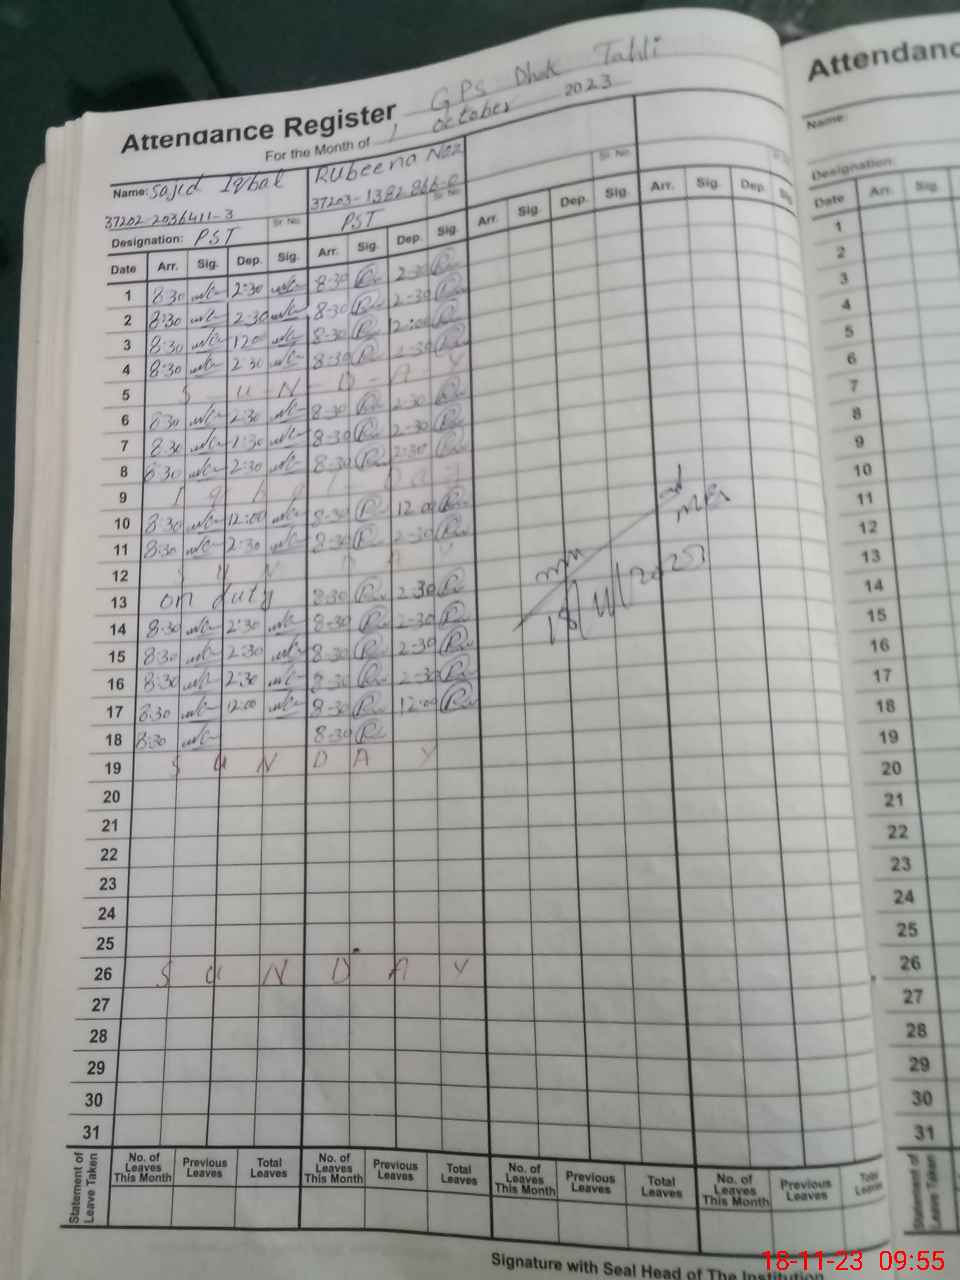 GPS Dhok Tahli
Attendance Register
For the Month of October 2023
Name: Sajid Iqbal Rubeena Naz
37202-2036411-3 Sr. No. 37203-1382866-0 Sr. No. Sr. No.
Designation: PST PST
Date Arr. Sig. Dep. Sig. Arr. Sig. Dep. Sig. Arr. Sig. Dep. Sig. Arr. Sig. Dep. Sig.
1 8:30 2:30 8:30 2-30
2 8:30 2:30 8-30 2-30
3 8:30 1200 8-30 12:00
4 8:30 2:30 8:30 2-30
5 S U N D A Y
6 8:30 2:30 8-30 2-30
7 8:30 1:30 8-30 2-30
8 8:30 2:30 8-30 2-30
9 Iqbal Day
10 8:30 12:00 8-30 12:00
11 8:30 2:30 8-30 2-30
12 S U N D A Y
13 on duty 8:30 2-30
14 8:30 2:30 8-30 2-30
15 8:30 2:30 8-30 2-30
16 8:30 2:30 8-30 2-30
17 8:30 12:00 8-30 12:00
18 8:30 8-30
19 S U N D A Y
20
21
22
23
24
25
26 S U N D A Y
27
28
29
30
31
18/11/2023
Statement of Leave Taken
No. of Leaves This Month Previous Leaves Total Leaves No. of Leaves This Month Previous Leaves Total Leaves No. of Leaves This Month Previous Leaves Total Leaves No. of Leaves This Month Previous Leaves Total Leaves
Signature with Seal Head of The Institution
Attendanc
Name:
Designation:
Date Arr. Sig.
1
2
3
4
5
6
7
8
9
10
11
12
13
14
15
16
17
18
19
20
21
22
23
24
25
26
27
28
29
30
31
Statement of Leave Taken
No. of Leaves This Month
18-11-23 09:55